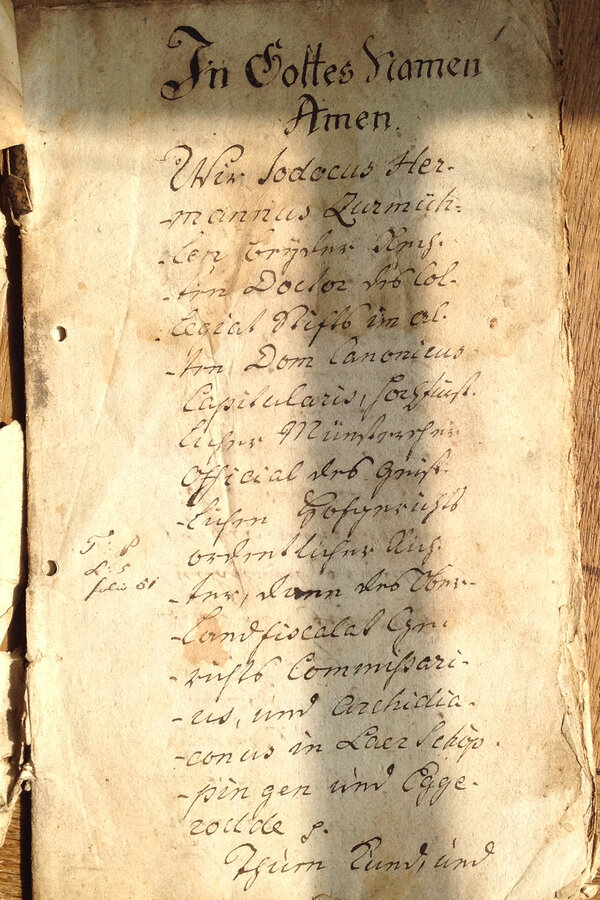 In Gottes Namen
Amen.
Wir Jodocus Her-
-mannus Zurmüh-
-len beyder Rech-
-ten Doctor des Col-
-legial Stifts im al-
-ten Dom Canonicus
Capitularis, Hochfürst-
licher Münsterscher
Official des Geist-
-lichen Hofgerichts
ordentlicher Rich-
-ter, dann des Ober-
-landfiscalat Gee-
-richts Commissari-
-us, und Archidia-
-conus in Laer Schöp-
-pingen und Egge-
rodde p.
Thuen Kund, und
T: 8
L: 5
folio 51